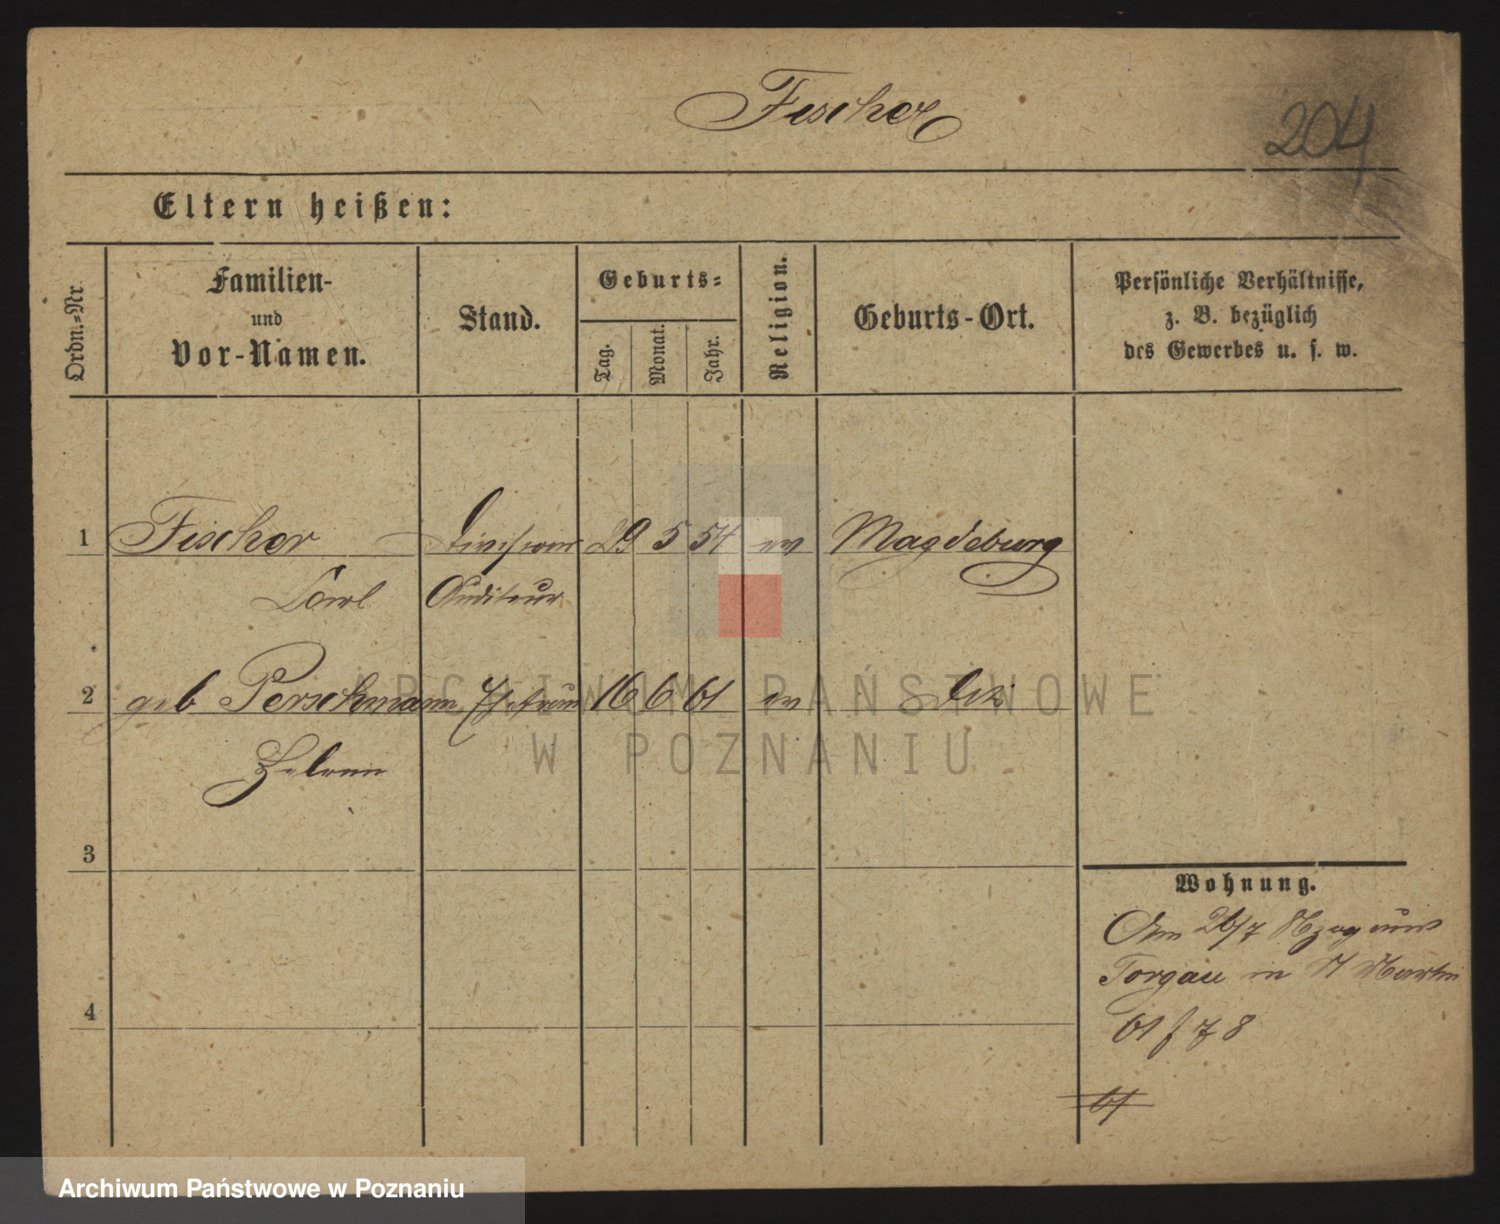 Fischer
204
Eltern heißen:
Ordn.-Nr.
Familien-
und
Vor-Namen.
Stand.
Geburts-
Tag.
Monat.
Jahr.
Religion.
Geburts-Ort.
Persönliche Verhältnisse,
z. B. bezüglich
des Gewerbes u. s. w.
1 Fischer Divisions 29 5 54 ev Magdeburg
Carl Auditeur
2 geb Perschmann Ehefrau 16 6 61 ev
3
Wohnung.
Am 26/7
Torgau in St Martin
4
61 f 78
61
ARCHIWUM PAŃSTWOWE
W POZNANIU
Archiwum Państwowe w Poznaniu